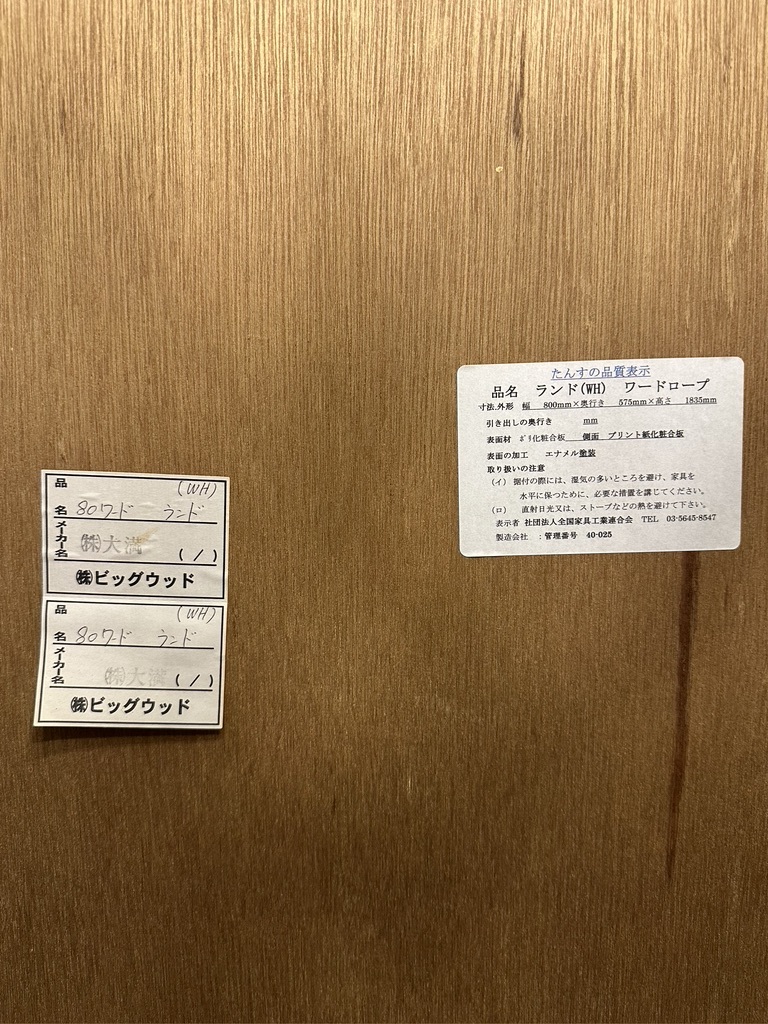 品 (WH)
名 80ワード ランド
メーカー名 ㈱大満 (/)
㈱ビッグウッド
品 (WH)
名 80ワード ランド
メーカー名 ㈱大満 (/)
㈱ビッグウッド
たんすの品質表示
品名 ランド(WH) ワードローブ
寸法.外形 幅 800mm×奥行き 575mm×高さ 1835mm
引き出しの奥行き mm
表面材 ポリ化粧合板 側面 プリント紙化粧合板
表面の加工 エナメル塗装
取り扱いの注意
(イ) 据付の際には、湿気の多いところを避け、家具を
水平に保つために、必要な措置を講じてください。
(ロ) 直射日光又は、ストーブなどの熱を避けて下さい。
表示者 社団法人全国家具工業連合会 TEL 03-5645-8547
製造会社 :管理番号 40-025